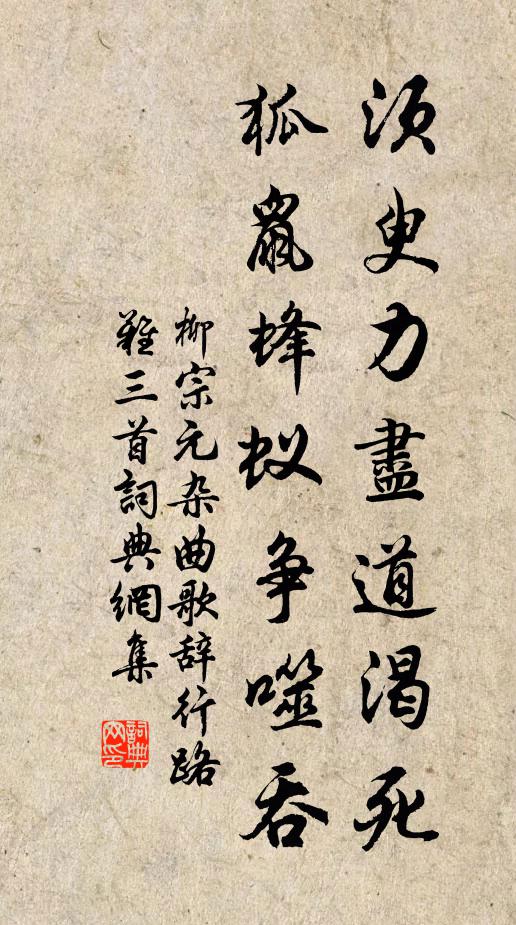 須臾力盡道渴死
狐鼠蜂蚁争噬吞
柳宗元杂曲歌辞行路
難三首詞典網集
詞典
网印